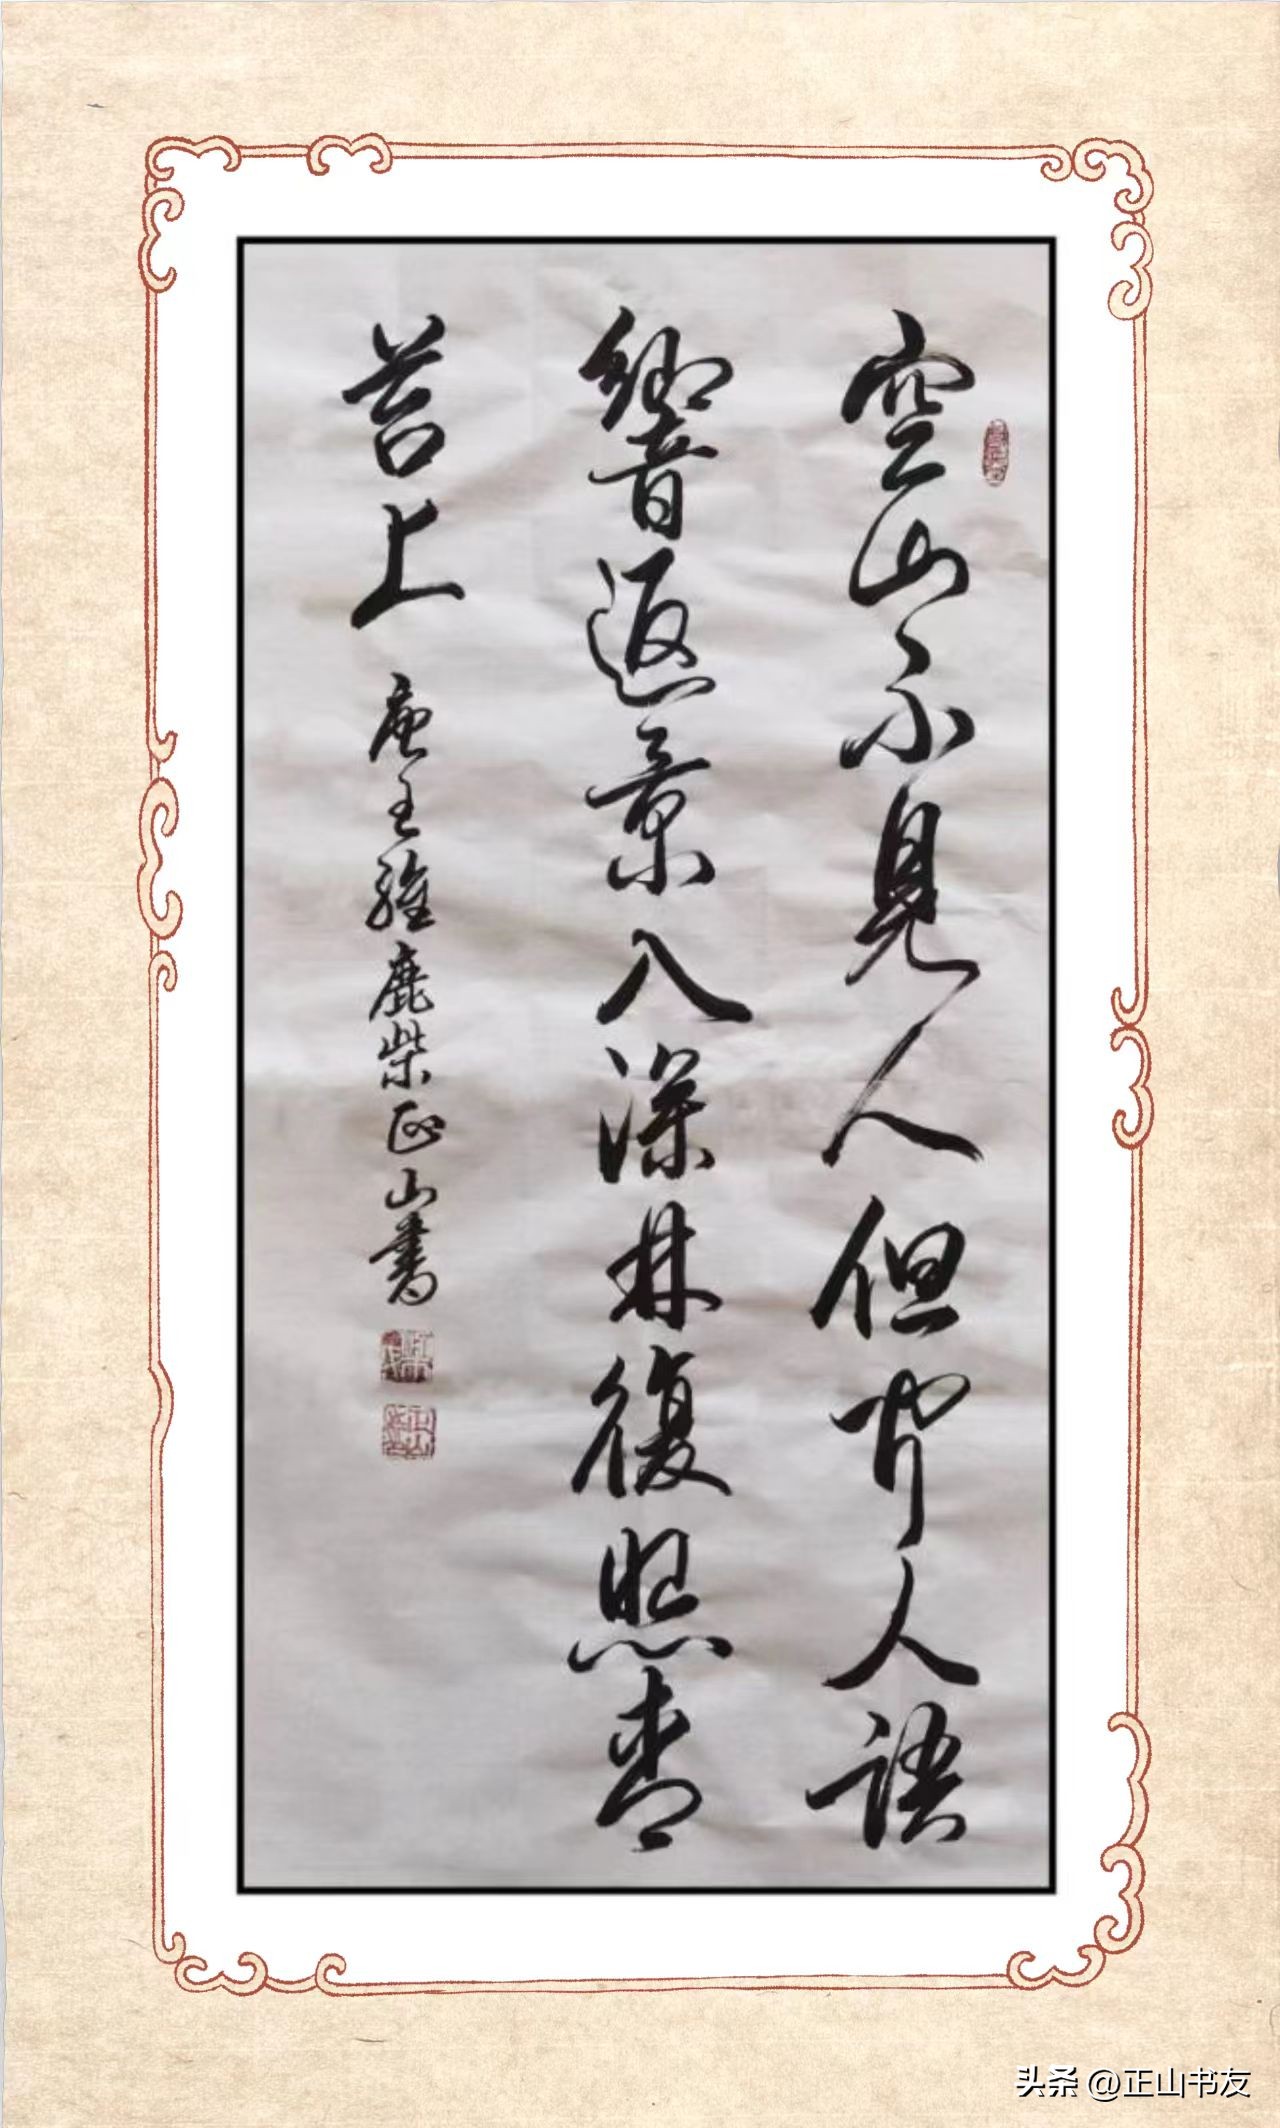 空山不見人但聞人語
響返景入深林復照青
苔上 唐王維鹿柴正山書
头条 @正山书友